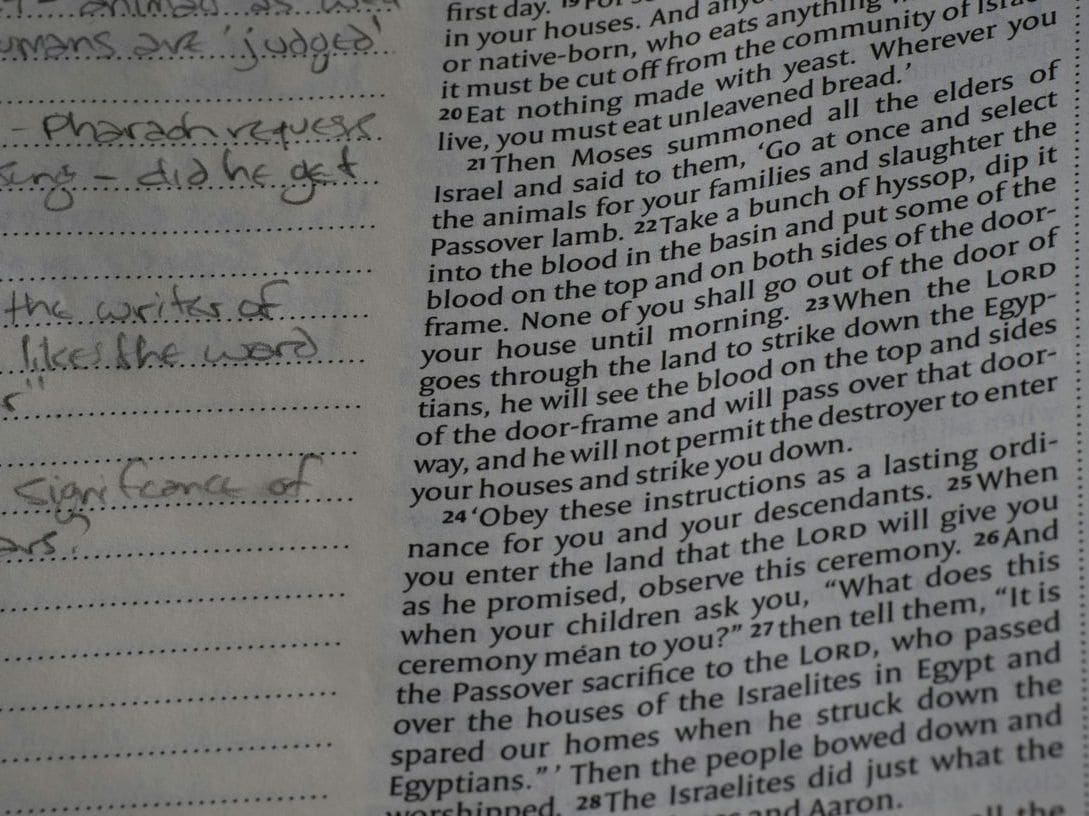 animals as well
umans are 'judged'
- Pharaoh request
sing - did he get
the writer of
likes the word
significance of
ars?
first day. 19
in your houses. And
or native-born, who eats anything
it must be cut off from the community of
20 Eat nothing made with yeast. Wherever you
live, you must eat unleavened bread.’
21 Then Moses summoned all the elders of
Israel and said to them, ‘Go at once and select
the animals for your families and slaughter the
Passover lamb. 22 Take a bunch of hyssop, dip it
into the blood in the basin and put some of the
blood on the top and on both sides of the door-
frame. None of you shall go out of the door of
your house until morning. 23 When the LORD
goes through the land to strike down the Egyp-
tians, he will see the blood on the top and sides
of the door-frame and will pass over that door-
way, and he will not permit the destroyer to enter
your houses and strike you down.
24 ‘Obey these instructions as a lasting ordi-
nance for you and your descendants. 25 When
you enter the land that the LORD will give you
as he promised, observe this ceremony. 26 And
when your children ask you, “What does this
ceremony mean to you?” 27 then tell them, “It is
the Passover sacrifice to the LORD, who passed
over the houses of the Israelites in Egypt and
spared our homes when he struck down the
Egyptians.” ’ Then the people bowed down and
worshipped. 28 The Israelites did just what the
and Aaron.
all the